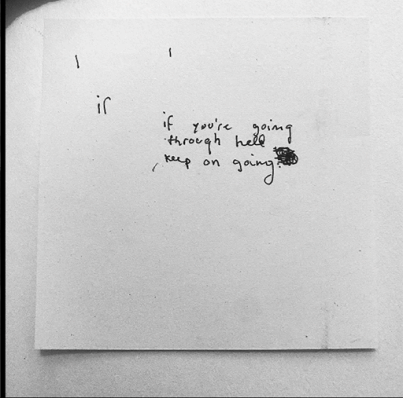 I I
if
if you're going
through hell
, keep on going.